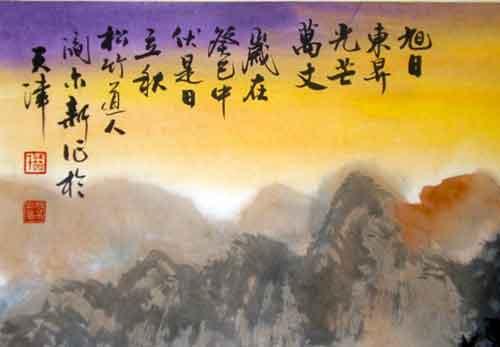 旭日
東昇
光芒
萬丈
歲在
癸巳中
伏是日
立秋
松竹道人
阎尔新作於
天津